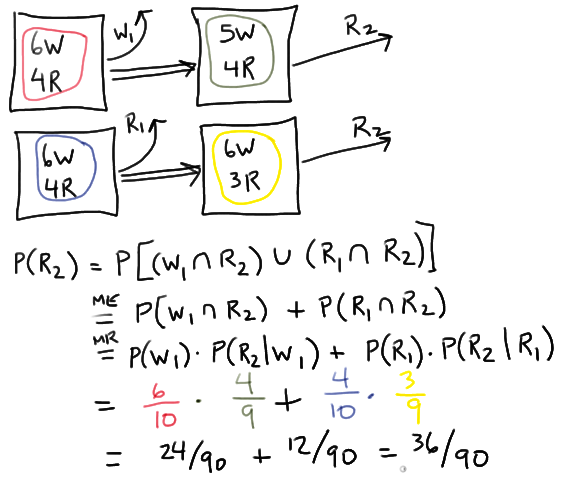 6W
4R
W₁
5W
4R
R₂
6W
4R
R₁
6W
3R
R₂
P(R₂) = P[(W₁ ∩ R₂) ∪ (R₁ ∩ R₂)]
ME = P(W₁ ∩ R₂) + P(R₁ ∩ R₂)
MR = P(W₁) · P(R₂|W₁) + P(R₁) · P(R₂|R₁)
= 6/10 · 4/9 + 4/10 · 3/9
= 24/90 + 12/90 = 36/90